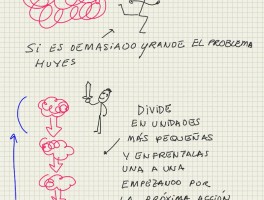 SI ES DEMASIADO GRANDE EL PROBLEMA
HUYES
DIVIDE
EN UNIDADES
MÁS PEQUEÑAS
Y ENFRENTALAS
UNA A UNA
EMPEZANDO POR
LA PRÓXIMA ACCIÓN